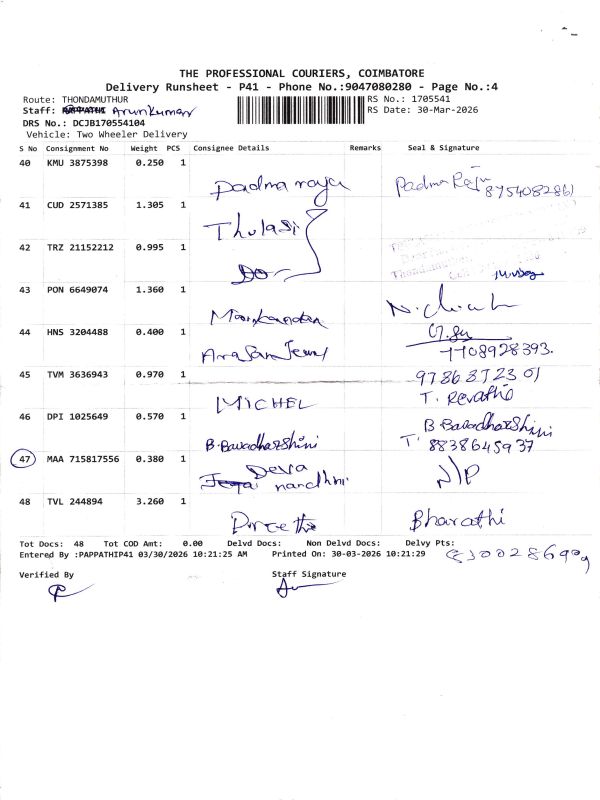 THE PROFESSIONAL COURIERS, COIMBATORE
Delivery Runsheet - P41 - Phone No.:9047080280 - Page No.:4
Route: THONDAMUTHUR
RS No.: 1705541
Staff: Arunkumar
RS Date: 30-Mar-2026
DRS No.: DCJB170554104
Vehicle: Two Wheeler Delivery
S No Consignment No Weight PCS Consignee Details Remarks Seal & Signature
40 KMU 3875398 0.250 1
Padma raja Padma Raja 8754082861
41 CUD 2571385 1.305 1
Thulasi
42 TRZ 21152212 0.995 1
DO
43 PON 6649074 1.360 1
Manikandan
44 HNS 3204488 0.400 1
7708928393.
45 TVM 3636943 0.970 1
9786872301
MICHEL T. Revathi
46 DPI 1025649 0.570 1
B. Bavadharshini
B. Bavadharshini T: 8838645937
47 MAA 715817556 0.380 1
Deva
nandhini N/P
48 TVL 244894 3.260 1
Preethi Bharathi
Tot Docs: 48 Tot COD Amt: 0.00 Delvd Docs: Non Delvd Docs: Delvy Pts:
Entered By :PAPPATHIP41 03/30/2026 10:21:25 AM Printed On: 30-03-2026 10:21:29
Verified By Staff Signature